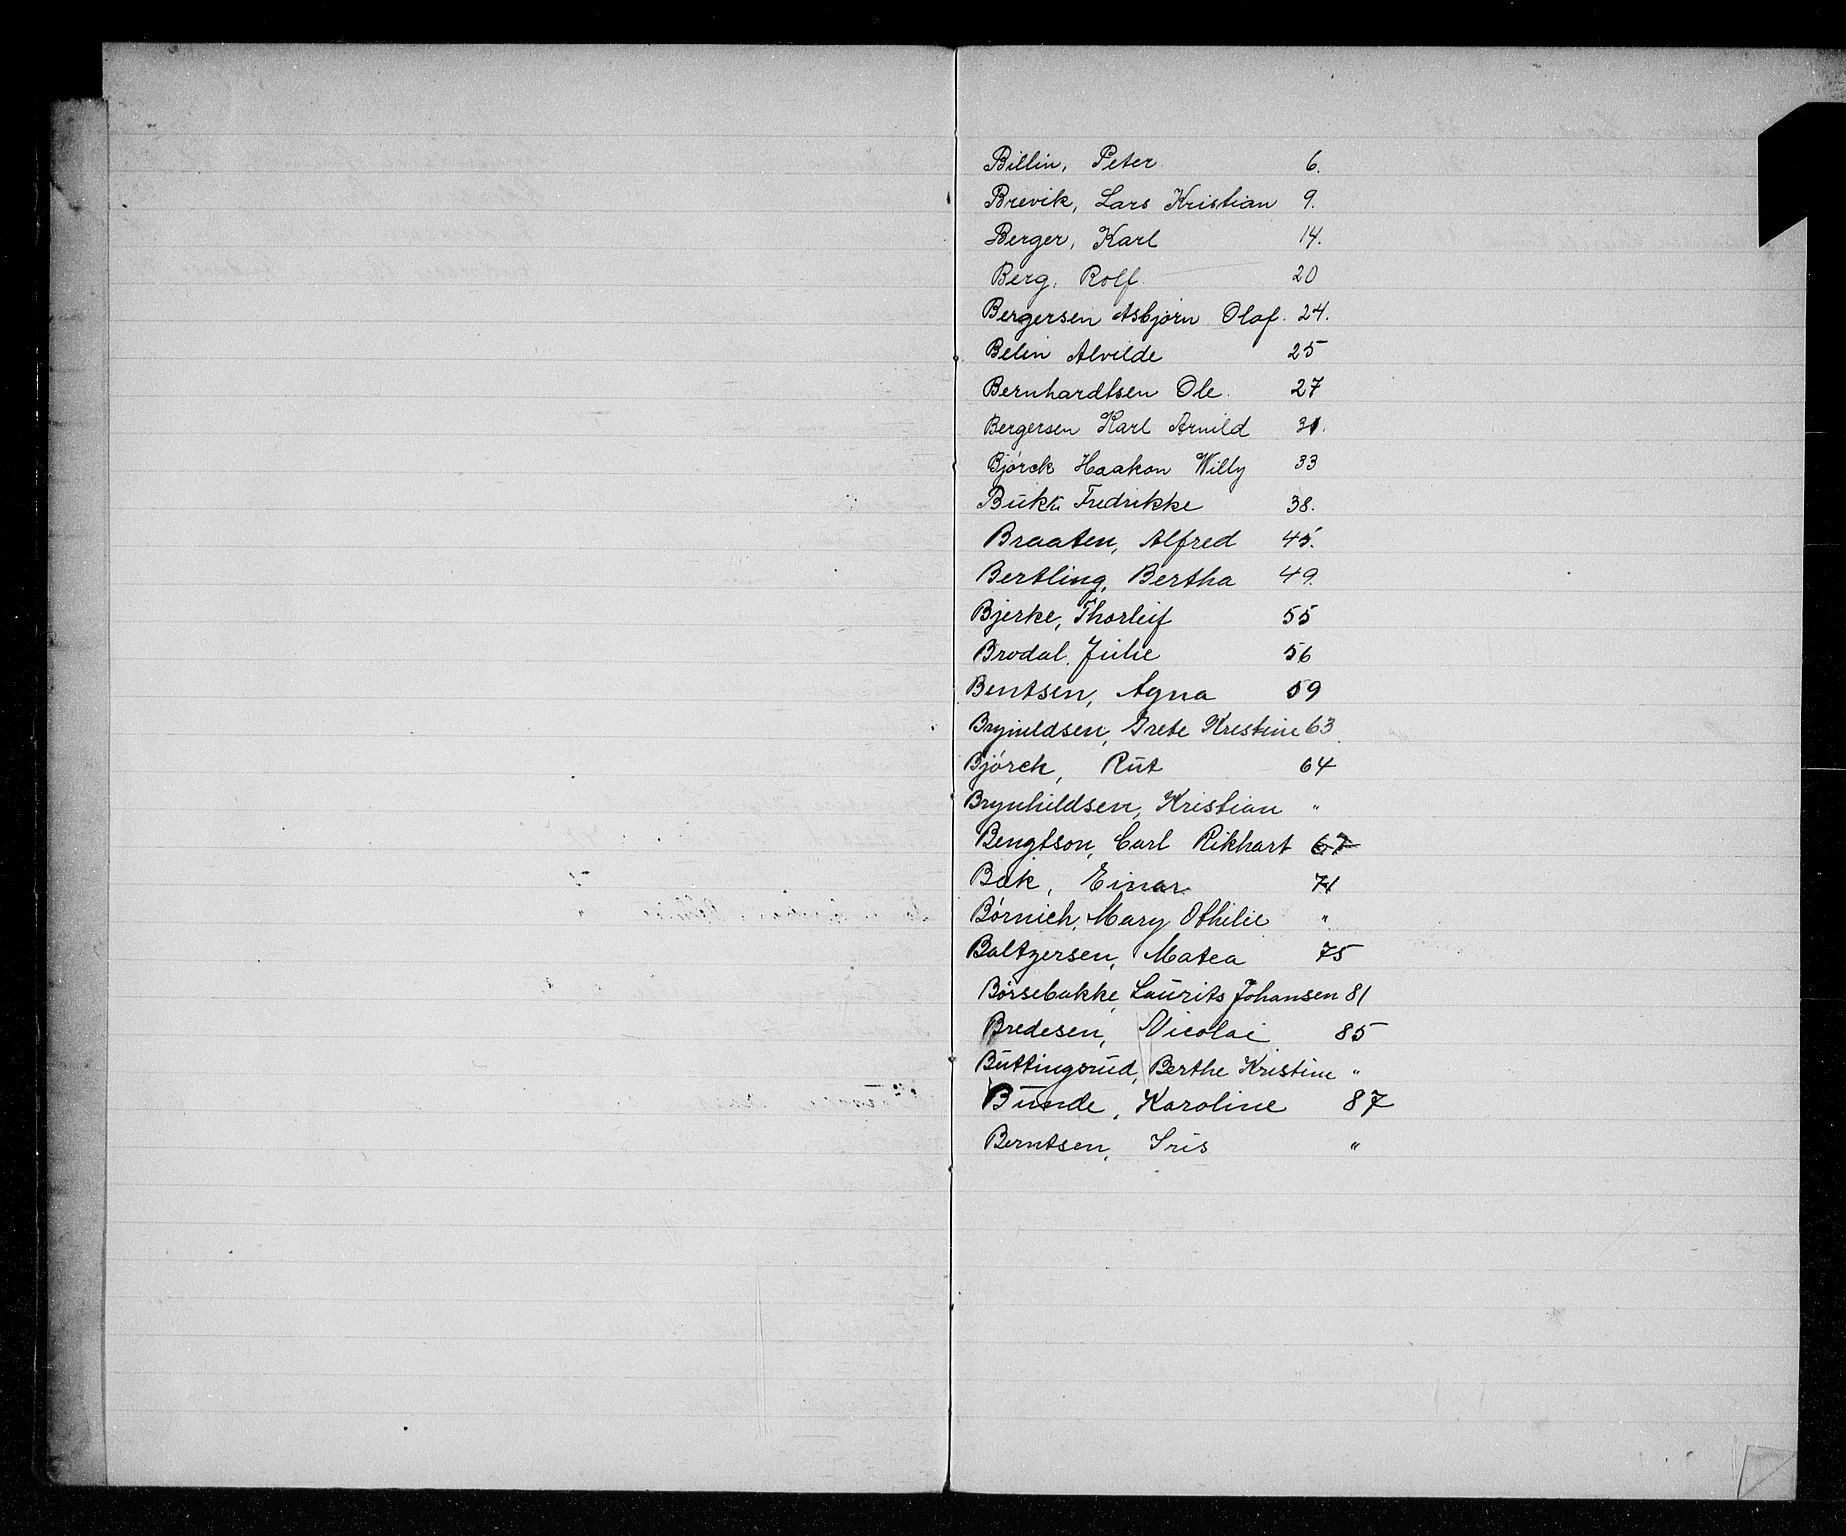 Billin, Peter 6.
Brevik, Lars Kristian 9.
Berger, Karl 14.
Berg, Rolf 20
Bergersen Asbjørn Olaf. 24.
Belin Alvilde 25
Bernhardtsen Ole. 27
Bergersen Karl Arnild 31.
Bjørck Haakon Willy 33
Fredrikke 38.
Braaten, Alfred 45.
Bertling, Bertha 49.
Bjerke, Thorleif 55
Brodal, Julie 56
Bentsen, Agna 59
Brynildsen, Grete Kristine 63
Bjørck, Rut 64
Brynhildsen, Kristian "
Bengtson, Carl Rikhart 67
Bak, Einar 71
Børnich, Mary Othilie "
Baltzersen, Matea 75
Børsebakke, Laurits Johansen 81
Bredesen, Nicolai 85
Buttingsrud, Berthe Kristine "
Bunde, Karoline 87
Berntsen, Iris "